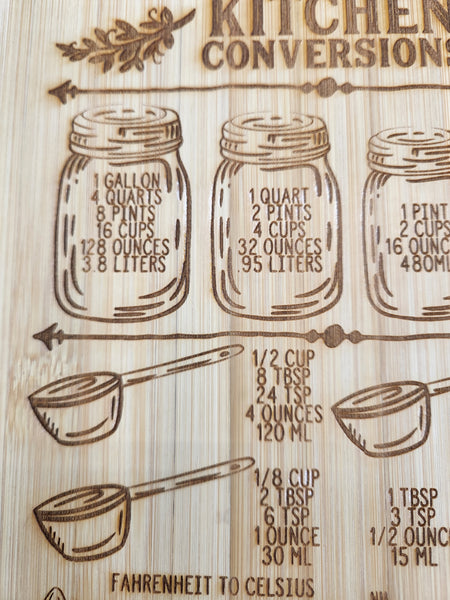 KITCHEN
CONVERSIONS
1 GALLON
4 QUARTS
8 PINTS
16 CUPS
128 OUNCES
3.8 LITERS
1 QUART
2 PINTS
4 CUPS
32 OUNCES
.95 LITERS
1 PINT
2 CUPS
16 OUNC
480ML
1/2 CUP
8 TBSP
24 TSP
4 OUNCES
120 ML
1/8 CUP
2 TBSP
6 TSP
1 OUNCE
30 ML
1 TBSP
3 TSP
1/2 OUNC
15 ML
FAHRENHEIT TO CELSIUS